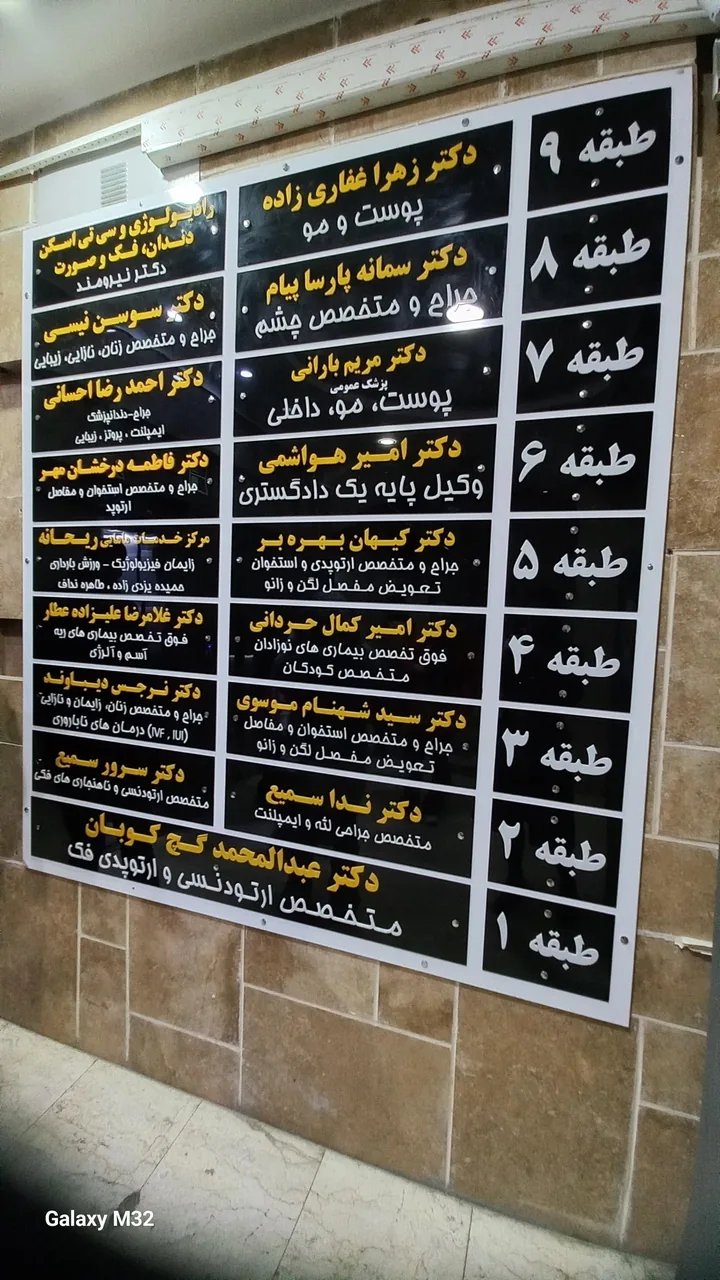 طبقه ۹
دکتر زهرا غفاری زاده
پوست و مو
رادیولوژی و سی تی اسکن
دندان، فک و صورت
دکتر نیرومند
طبقه ۸
دکتر سمانه پارسا پیام
جراح و متخصص چشم
دکتر سوسن نیسی
جراح و متخصص زنان، نازایی، زیبایی
طبقه ۷
دکتر مریم بارانی
پزشک عمومی
پوست، مو، داخلی
دکتر احمد رضا احسانی
جراح-دندانپزشک
ایمپلنت ، پروتز ، زیبایی
طبقه ۶
دکتر امیر هواشمی
وکیل پایه یک دادگستری
دکتر فاطمه درخشان مهر
جراح و متخصص استخوان و مفاصل
ارتوپد
طبقه ۵
دکتر کیهان بهره بر
جراح و متخصص ارتوپدی و استخوان
تعویض مفصل لگن و زانو
مرکز خدمات مامایی ریحانه
زایمان فیزیولوژیک - ورزش بارداری
حمیده یزدی زاده ، طاهره نداف
طبقه ۴
دکتر امیر کمال حردانی
فوق تخصص بیماری های نوزادان
متخصص کودکان
دکتر غلامرضا علیزاده عطار
فوق تخصص بیماری های ریه
آسم و آلرژی
طبقه ۳
دکتر سید شهنام موسوی
جراح و متخصص استخوان و مفاصل
تعویض مفصل لگن و زانو
دکتر نرجس دیباوند
جراح و متخصص زنان، زایمان و نازایی
درمان های ناباروری (IVF , IUI)
طبقه ۲
دکتر ندا سمیع
متخصص جراحی لثه و ایمپلنت
دکتر سرور سمیع
متخصص ارتودنسی و ناهنجاری های فکی
طبقه ۱
دکتر عبدالمحمد گچ کوبان
متخصص ارتودنسی و ارتوپدی فک
Galaxy M32